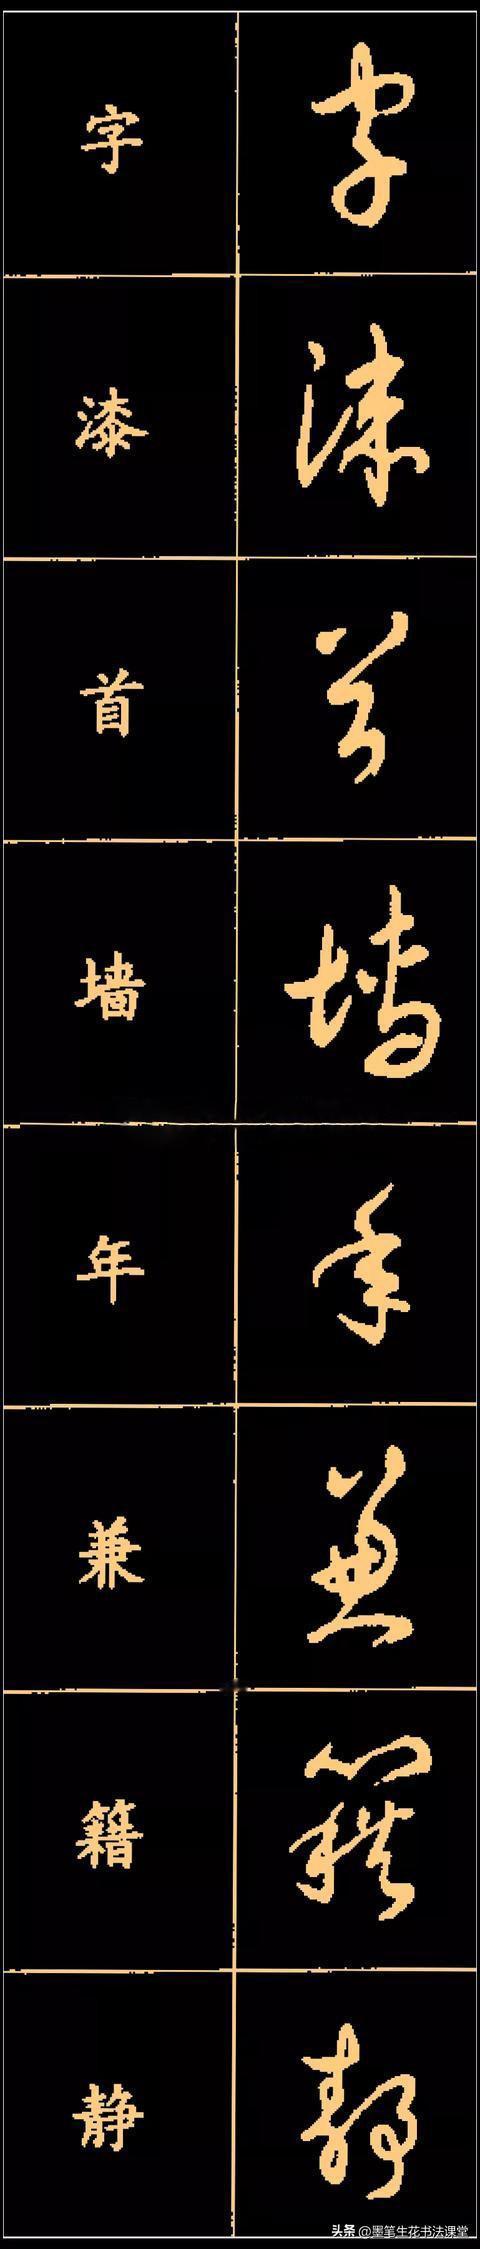 字 字
漆 漆
首 首
墙 墙
年 年
兼 兼
籍 籍
静 静
头条 @墨笔生花书法课堂